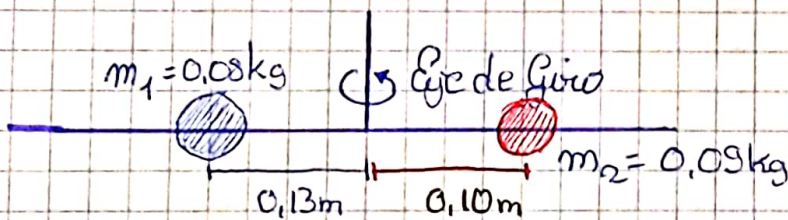 m₁ = 0,08kg
Eje de Giro
m₂ = 0,09kg
0,13m
0,10m